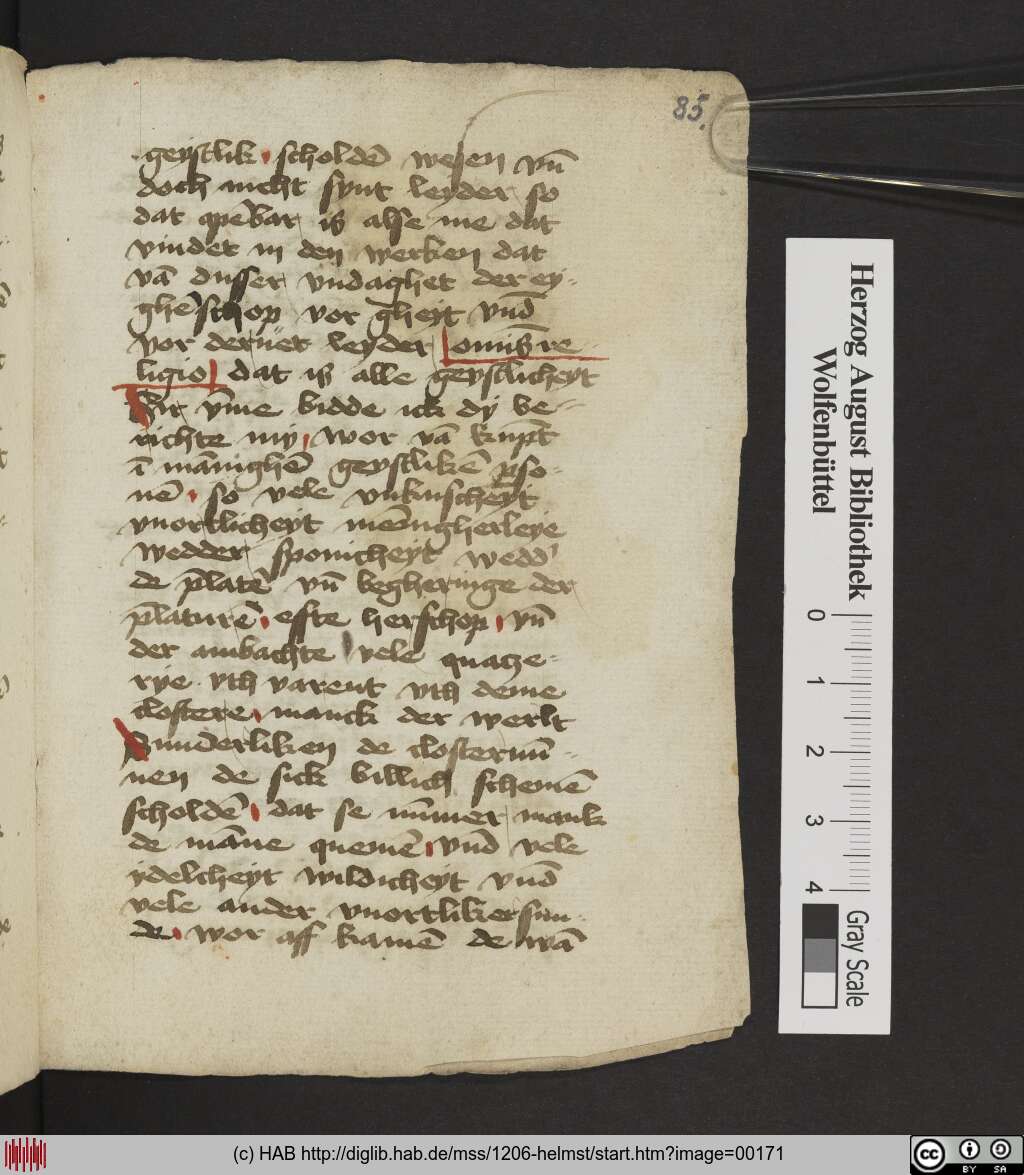 85.
geystlik scholdē wesen vn̄
doch nicht synt leyder so
dat openbar is alse me dat
vindet in den werken dat
vā dusser vndaghet der ey-
ghēschop vor gheyt vnd̄
vor deruet leyder omīs re
ligio dat is alle geystlicheyt
bidde ick dy be-
richte my wor vā kūpt
ī mānighē geystlikē pso-
nē so vele vnkuscheyt
vnortlicheyt mēnigherleye
wedder sponicheyt wedd'
de p̄latē vn̄ begheringe der
p̄laturē efte herschop vn̄
der ambachte vele quatze-
rye vth varent vth deme
clostere manck der werlt
Sunderliken de closterīū-
nen de sick billich schemē
scholdē dat se nūmer mank
de māne quemē vnd̄ vele
ydelcheyt wildicheyt vnd̄
vele ander vnortliker sun-
de wor aff kamē de wā
Herzog August Bibliothek
Wolfenbüttel
0 1 2 3 4
Gray Scale
(c) HAB http://diglib.hab.de/mss/1206-helmst/start.htm?image=00171
cc BY SA